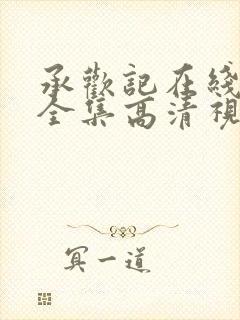 承歡記在綫
全集高清視
冥一道